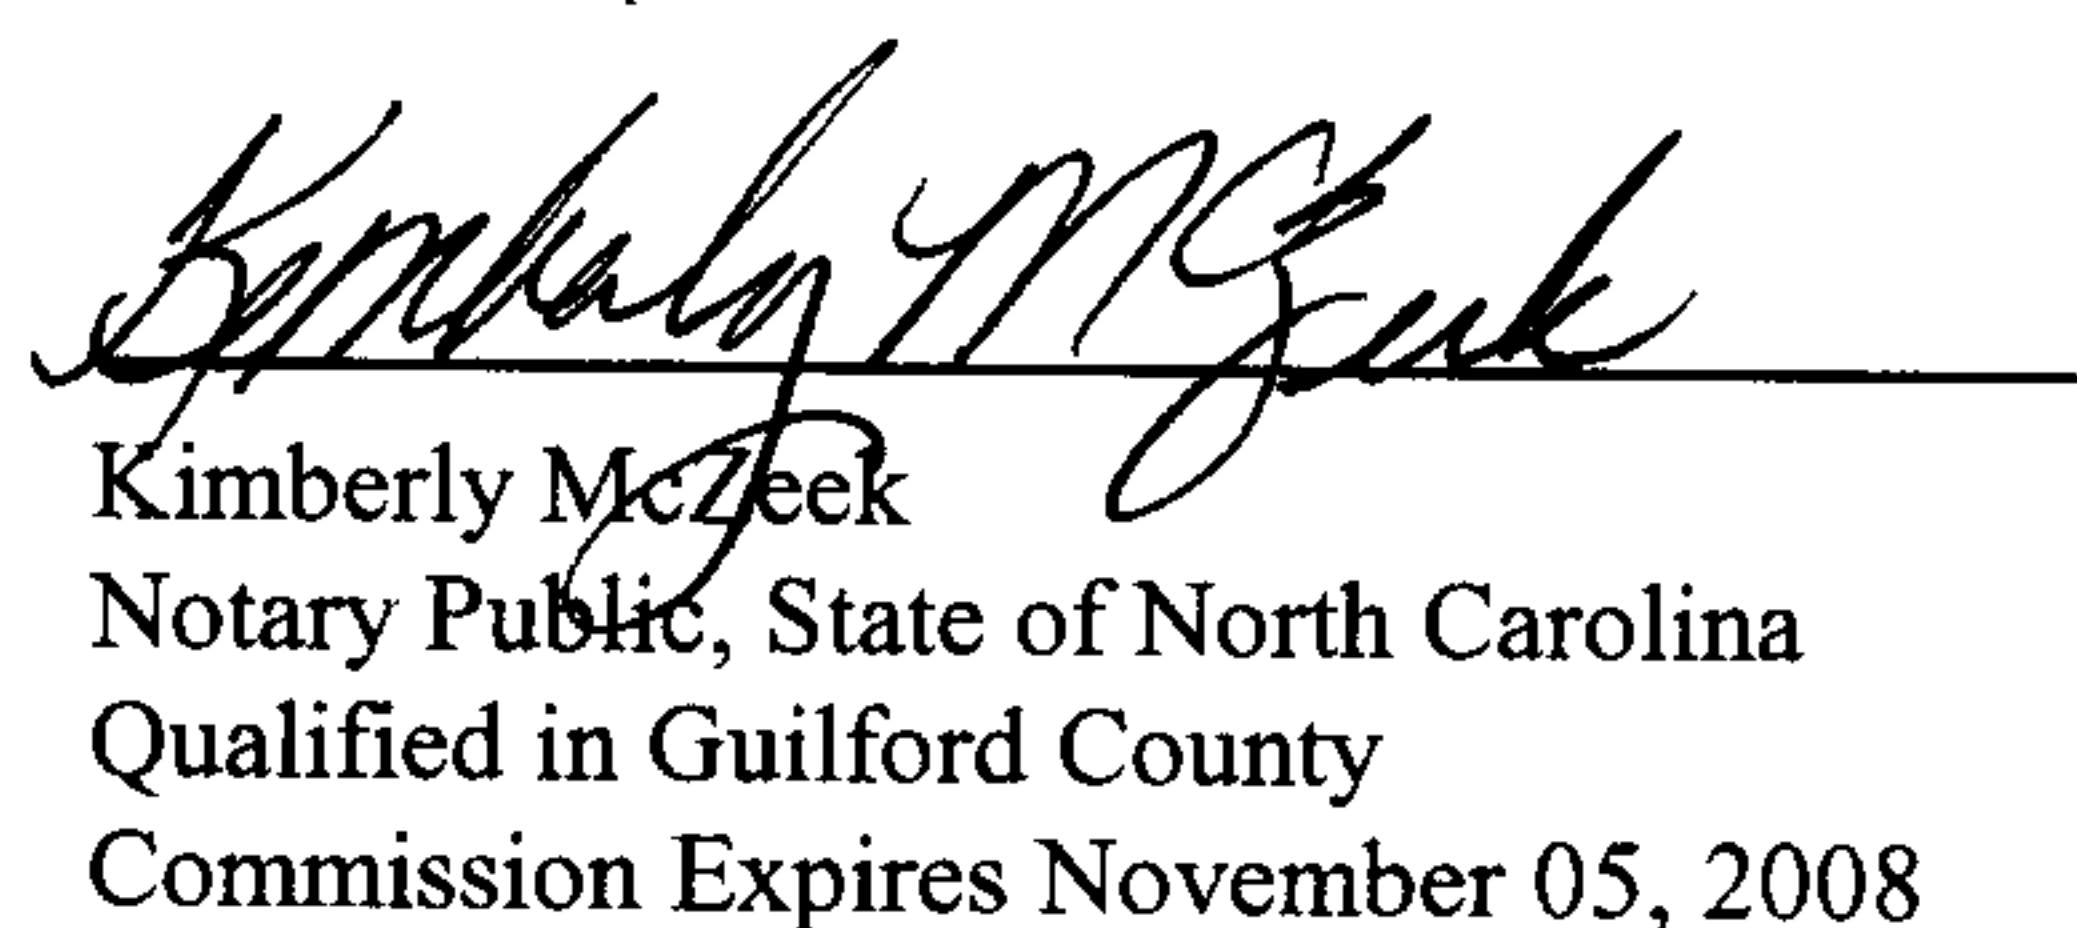 Kimberly McZeek
Kimberly McZeek
Notary Public, State of North Carolina
Qualified in Guilford County
Commission Expires November 05, 2008